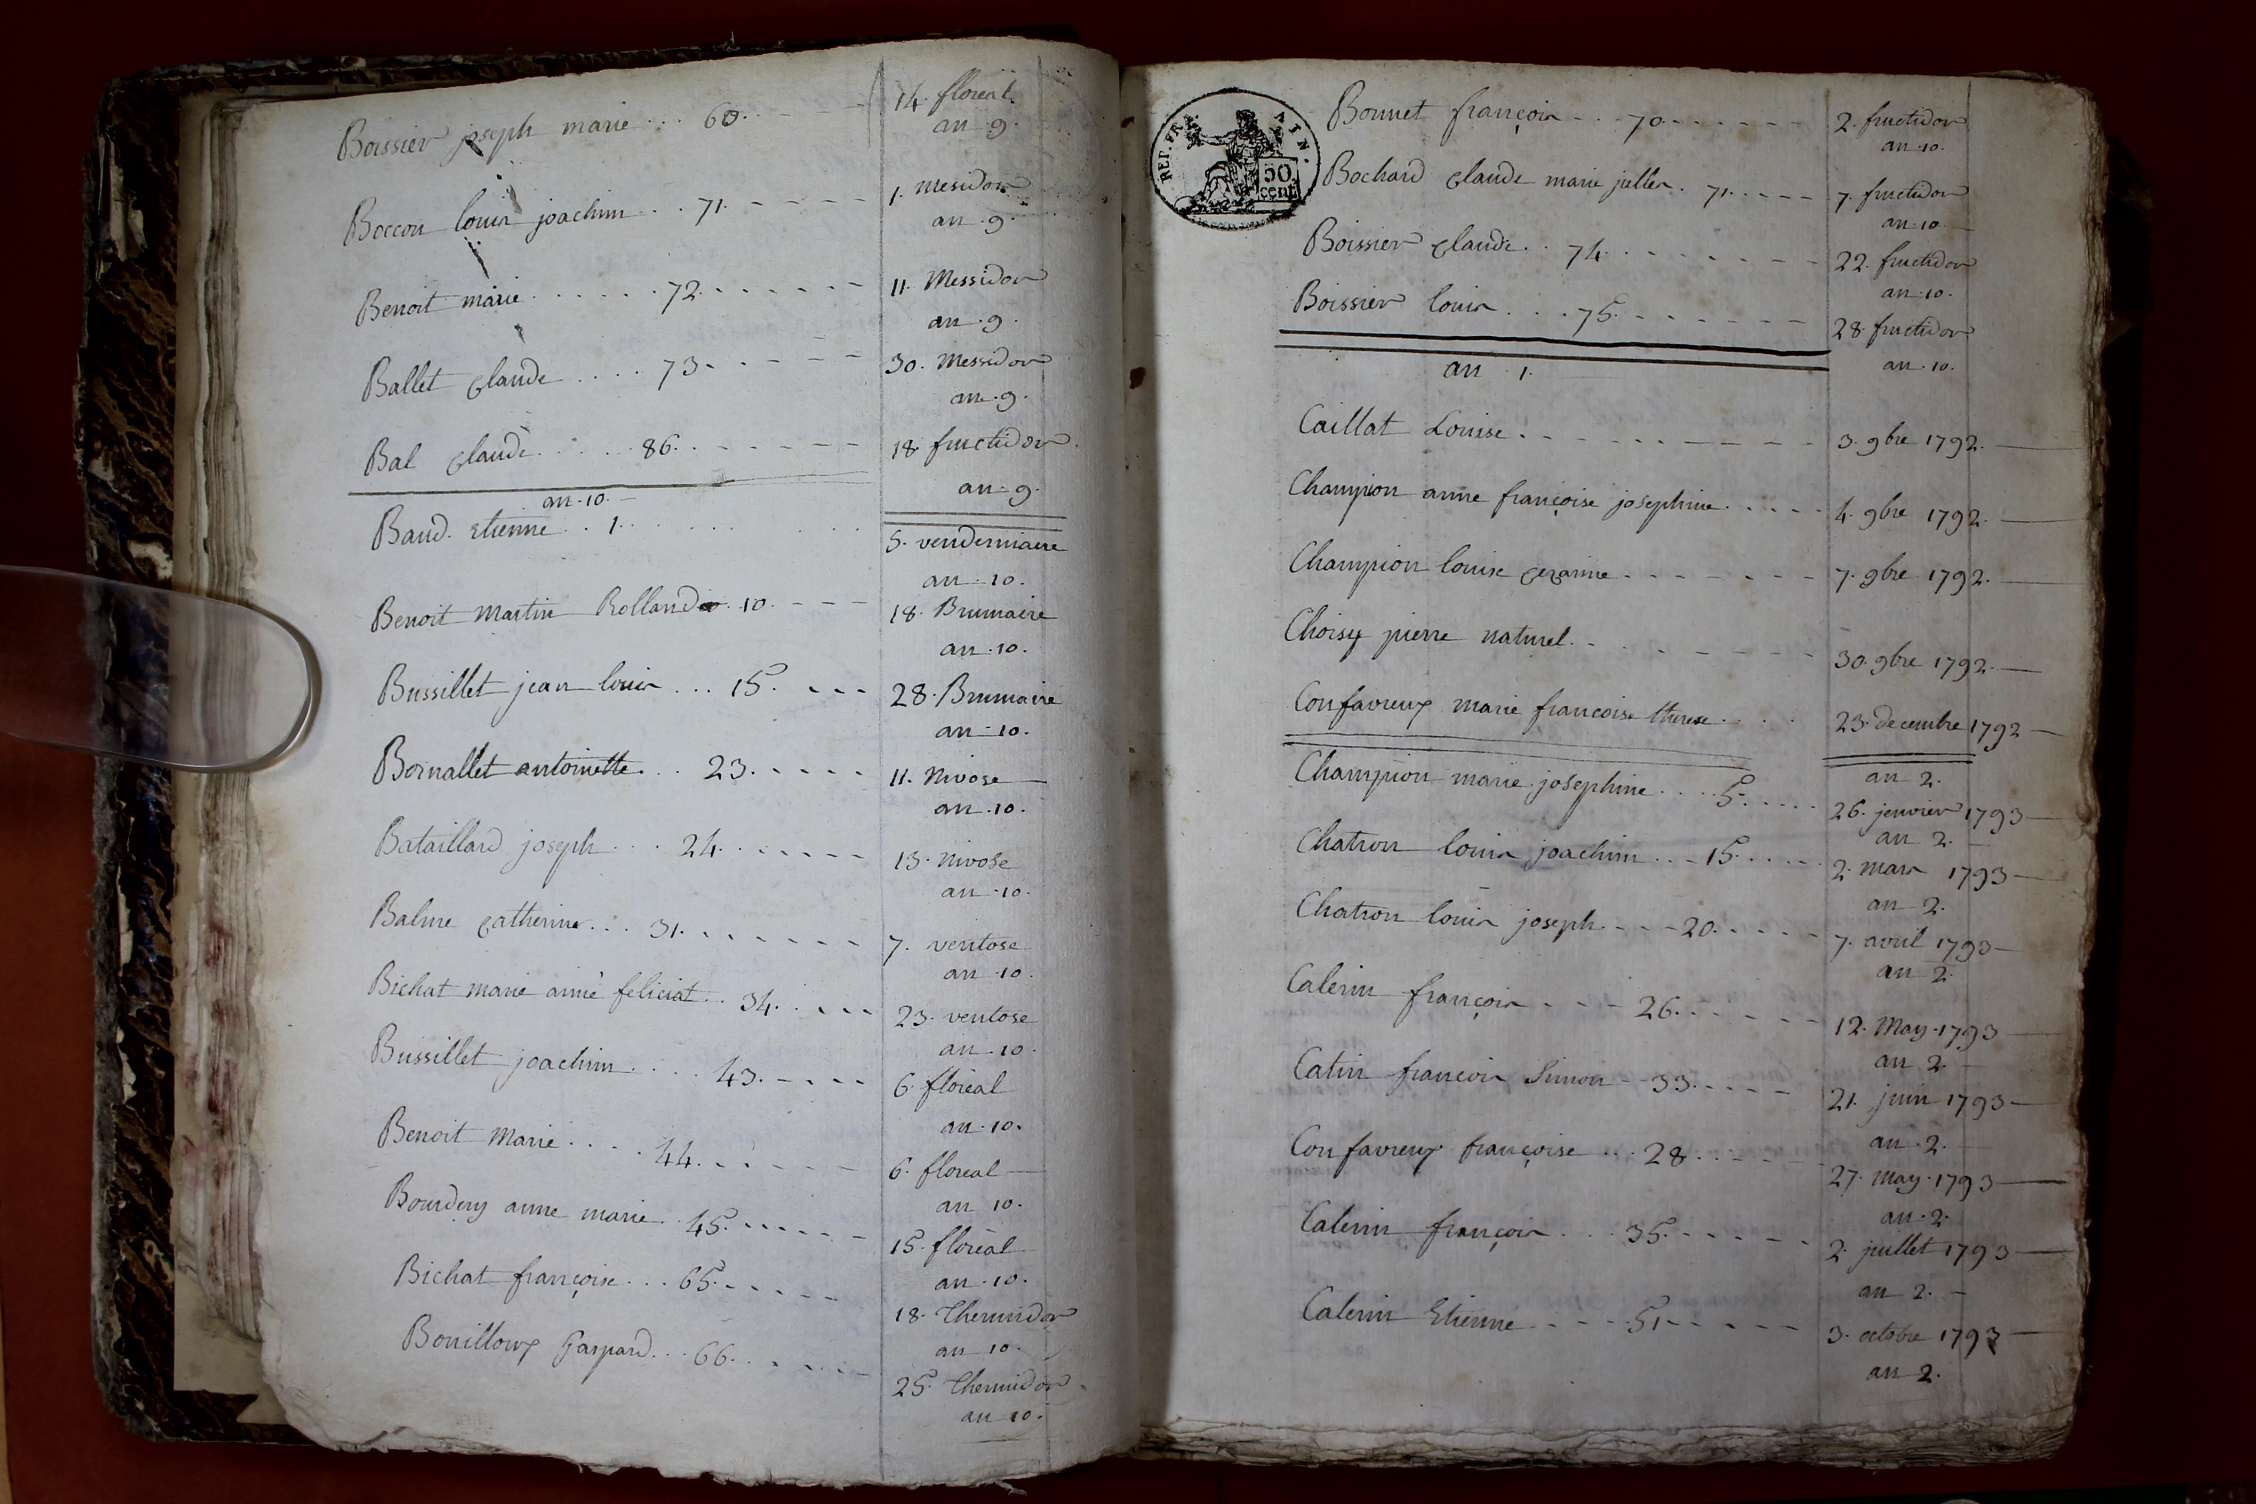 Boissier joseph marie . . . 60. - - - 14. floreal
an 9.
Boccon louis joachim . . . 71. - - - - - 1. Mesidor
an 9.
Benoit marie . . . . . . 72. - - - - - - 11. Messidor
an . 9.
Ballet Claude . . . . 73. - - - - 30. Messidor
an . 9.
Bal Claude . . . . . 86. - - - - - - 18. fructidor
an . 9.
an . 10. -
Baud. Etienne . . 1. . . . . . 5. vendemiaire
an . 10.
Benoit Martin Rolland . 10. - - - 18. Brumaire
an . 10.
Bussillet jean louis . . . 15. - - - 28. Brumaire
an - 10.
Bornallet antoinette. . . 23. - - - - - 11. Nivose
an . 10.
Bataillard joseph . . . 24. - - - - - 13. nivose
an . 10.
Balme Catherine . . . 31. - - - - - - 7. ventose
an . 10.
Bichat marie aimé feliciat . . 34. - - - 23. ventose
an . 10.
Bussillet joachim . . . . 43. - - - - 6. floréal
an . 10.
Benoit Marie . . . . 44. - - - - - 6. floreal
an 10.
Bourdeny anne marie . . 45. - - - - - 15. floréal
an . 10.
Bichat françoise . . . 65. - - - - - 18. Thermidor
an 10.
Bouilloux Gaspard . . . 66. - - - - - 25. Thermidor
an 10.
REP. FRA. AIN.
50.
cent
Bonnet françois . . . 70. - - - - - - 2. fructidor
an . 10.
Bochard Claude marie juller . 71. - - - - 7. fructidor
an . 10
Boissier Claude . . 74. - - - - - - - 22. fructidor
an . 10.
Boissier louis . . . . 75. - - - - - - - 28. fructidor
an . 10.
an . 1.
Caillat Louise . - - - - - - - - - - 3. 9bre 1792. -
Champion anne françoise josephine . . . . . 4. 9bre 1792. -
Champion louise Cezarine . - - - - - - - 7. 9bre 1792. -
Choisy pierre naturel . - - - - - - - 30. 9bre 1792. -
Confavreux marie francoise therese . . . 23. decembre 1792 -
an 2.
Champion marie josephine . . . . 5. . . . . . 26. jenvier 1793 -
an 2. -
Chatron louis joachim . . . 15. . . . . . 2. mars 1793 -
an 2.
Chatron louis joseph - - - 20. - - - - - 7. avril 1793 -
an 2.
Calerin françois - - - - 26. - - - - - 12. May . 1793 -
an 2. -
Catin francois Simon - 33. - - - - - 21. juin 1793 -
an . 2. -
Confavreux françoise . . . 28. . - - - 27. may . 1793 -
an . 2.
Calerin françois . . . 35. - - - - - - 2. juillet 1793 -
an 2. -
Calerin Etienne - - - - 51. - - - - - 3. octobre 1793 -
an 2.